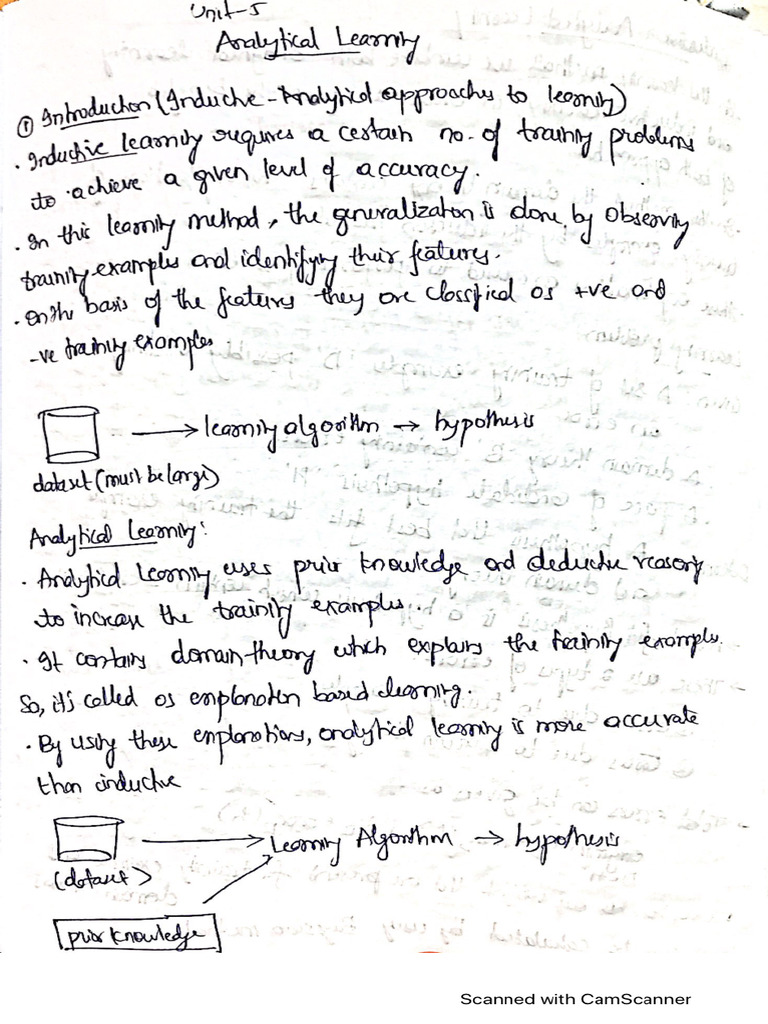 Unit-5
Analytical Learning
① Introduction (Inductive-Analytical approaches to learning)
. Inductive learning requires a certain no. of training problems
to achieve a given level of accuracy.
. In this learning method, the generalization is done by observing
training examples and identifying their features.
. on the basis of the features they are classified as +ve and
-ve training examples
→ learning algorithm → hypothesis
dataset (must be large)
Analytical Learning:
. Analytical learning uses prior knowledge and deductive reasoning
to increase the training examples..
. It contains domain theory which explains the training example.
So, it's called as explanation based learning.
. By using these explanations, analytical learning is more accurate
than inductive
→ Learning Algorithm → hypothesis
(dataset)
prior knowledge
Scanned with CamScanner